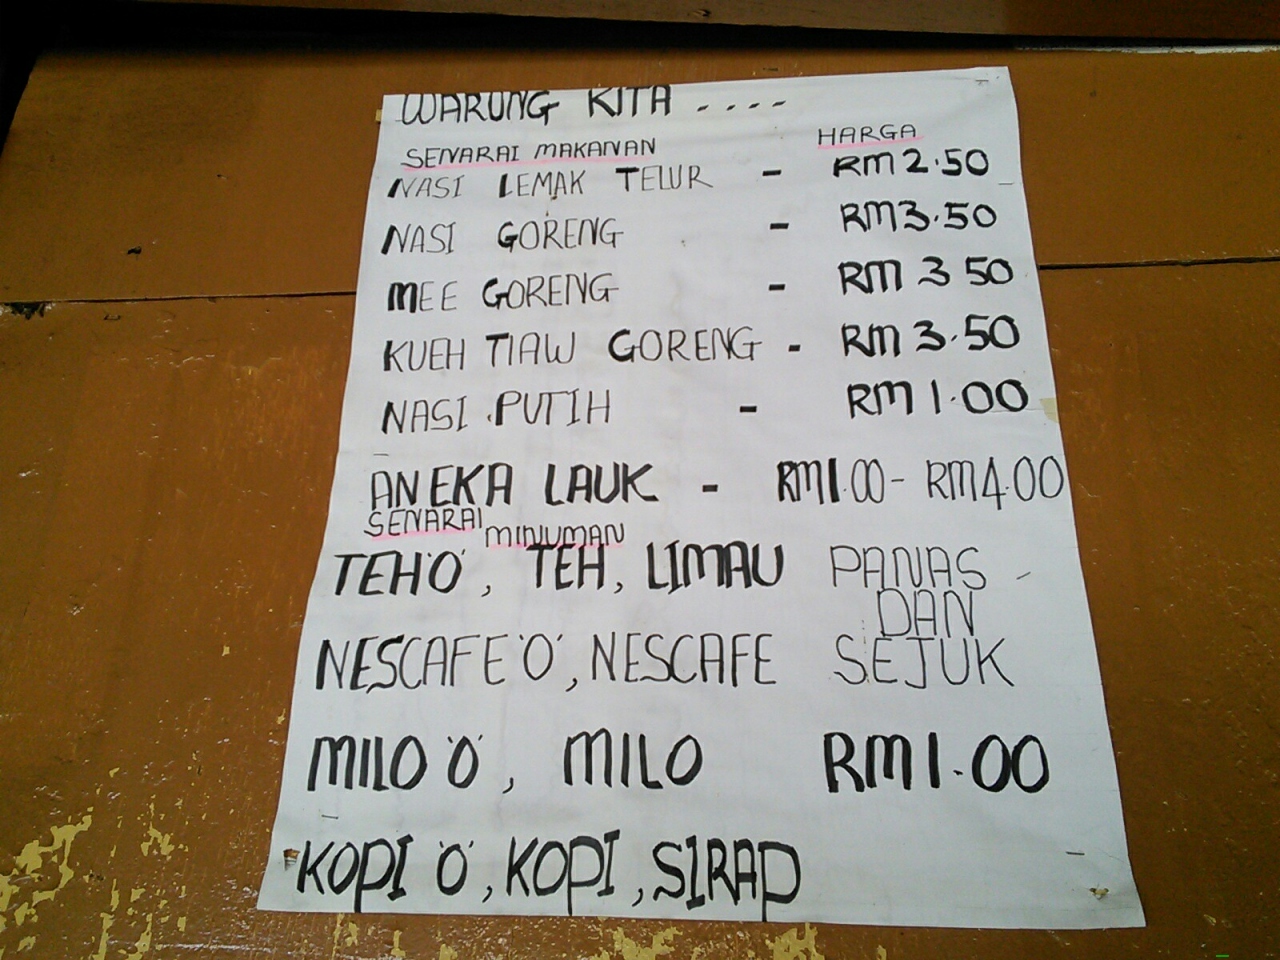 WARUNG KITA ----
SENARAI MAKANAN HARGA
NASI LEMAK TELUR - RM 2.50
NASI GORENG - RM 3.50
MEE GORENG - RM 3 50
KUEH TIAW GORENG - RM 3.50
NASI PUTIH - RM 1.00
ANEKA LAUK - RM1.00 - RM4.00
SENARAI MINUMAN
TEH'O', TEH, LIMAU PANAS -
DAN
NESCAFE 'O', NESCAFE SEJUK
MILO 'O', MILO RM1.00
KOPI 'O', KOPI, SIRAP